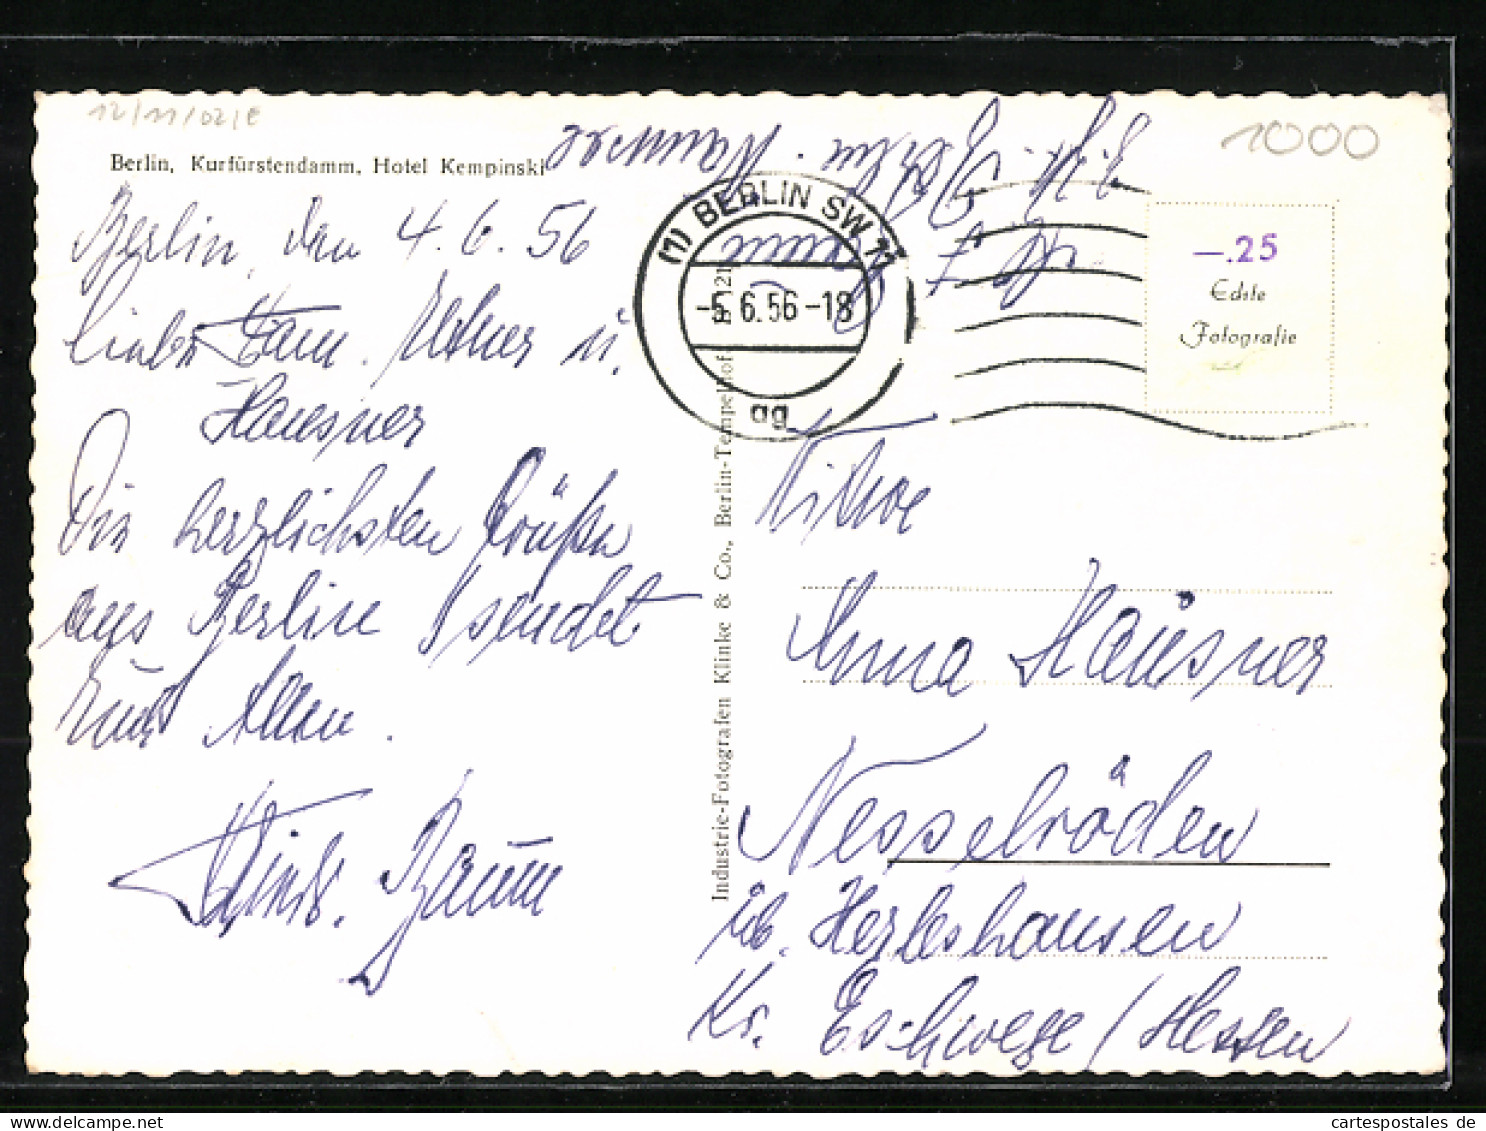 12/11/02/E
1000
Berlin, Kurfürstendamm, Hotel Kempinski
Berlin, den 4.6.56
Liebe Fam. u.
Hausner
Die herzlichsten Grüße
aus Berlin sendet
Euch allen.
Baum
(1) BERLIN SW 11
-5.6.56-18
ag
Industrie-Fotografen Klinke & Co., Berlin-Tempelhof
—.25
Echte
Fotografie
Witwe
Anna Hausner
Nesselröden
üb. Herleshausen
Kr. Eschwege / Hessen
cartespostales de